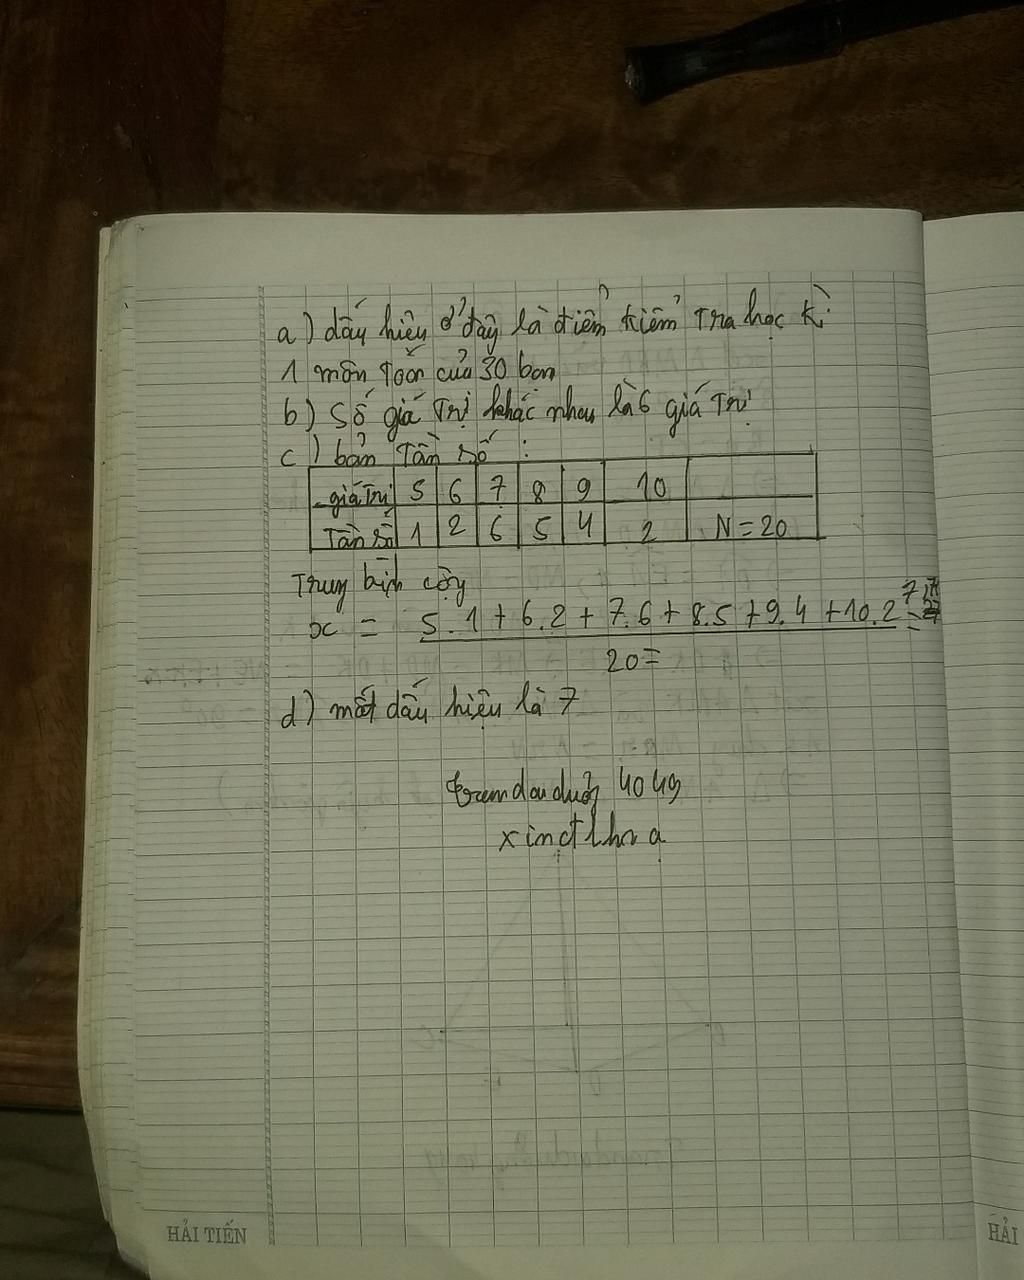 a) dấu hiệu ở đây là điểm kiểm tra học kì
1 môn toán của 30 bạn
b) số giá trị khác nhau là 6 giá trị
c) bản tần số :
giá trị 5 6 7 8 9 10
Tần số 1 2 6 5 4 2 N = 20
Trung bình cộng
x = 5.1 + 6.2 + 7.6 + 8.5 + 9.4 + 10.2 =
20 =
d) mốt dấu hiệu là 7
4049
xin ctlhn ạ
HẢI TIẾN
HẢI